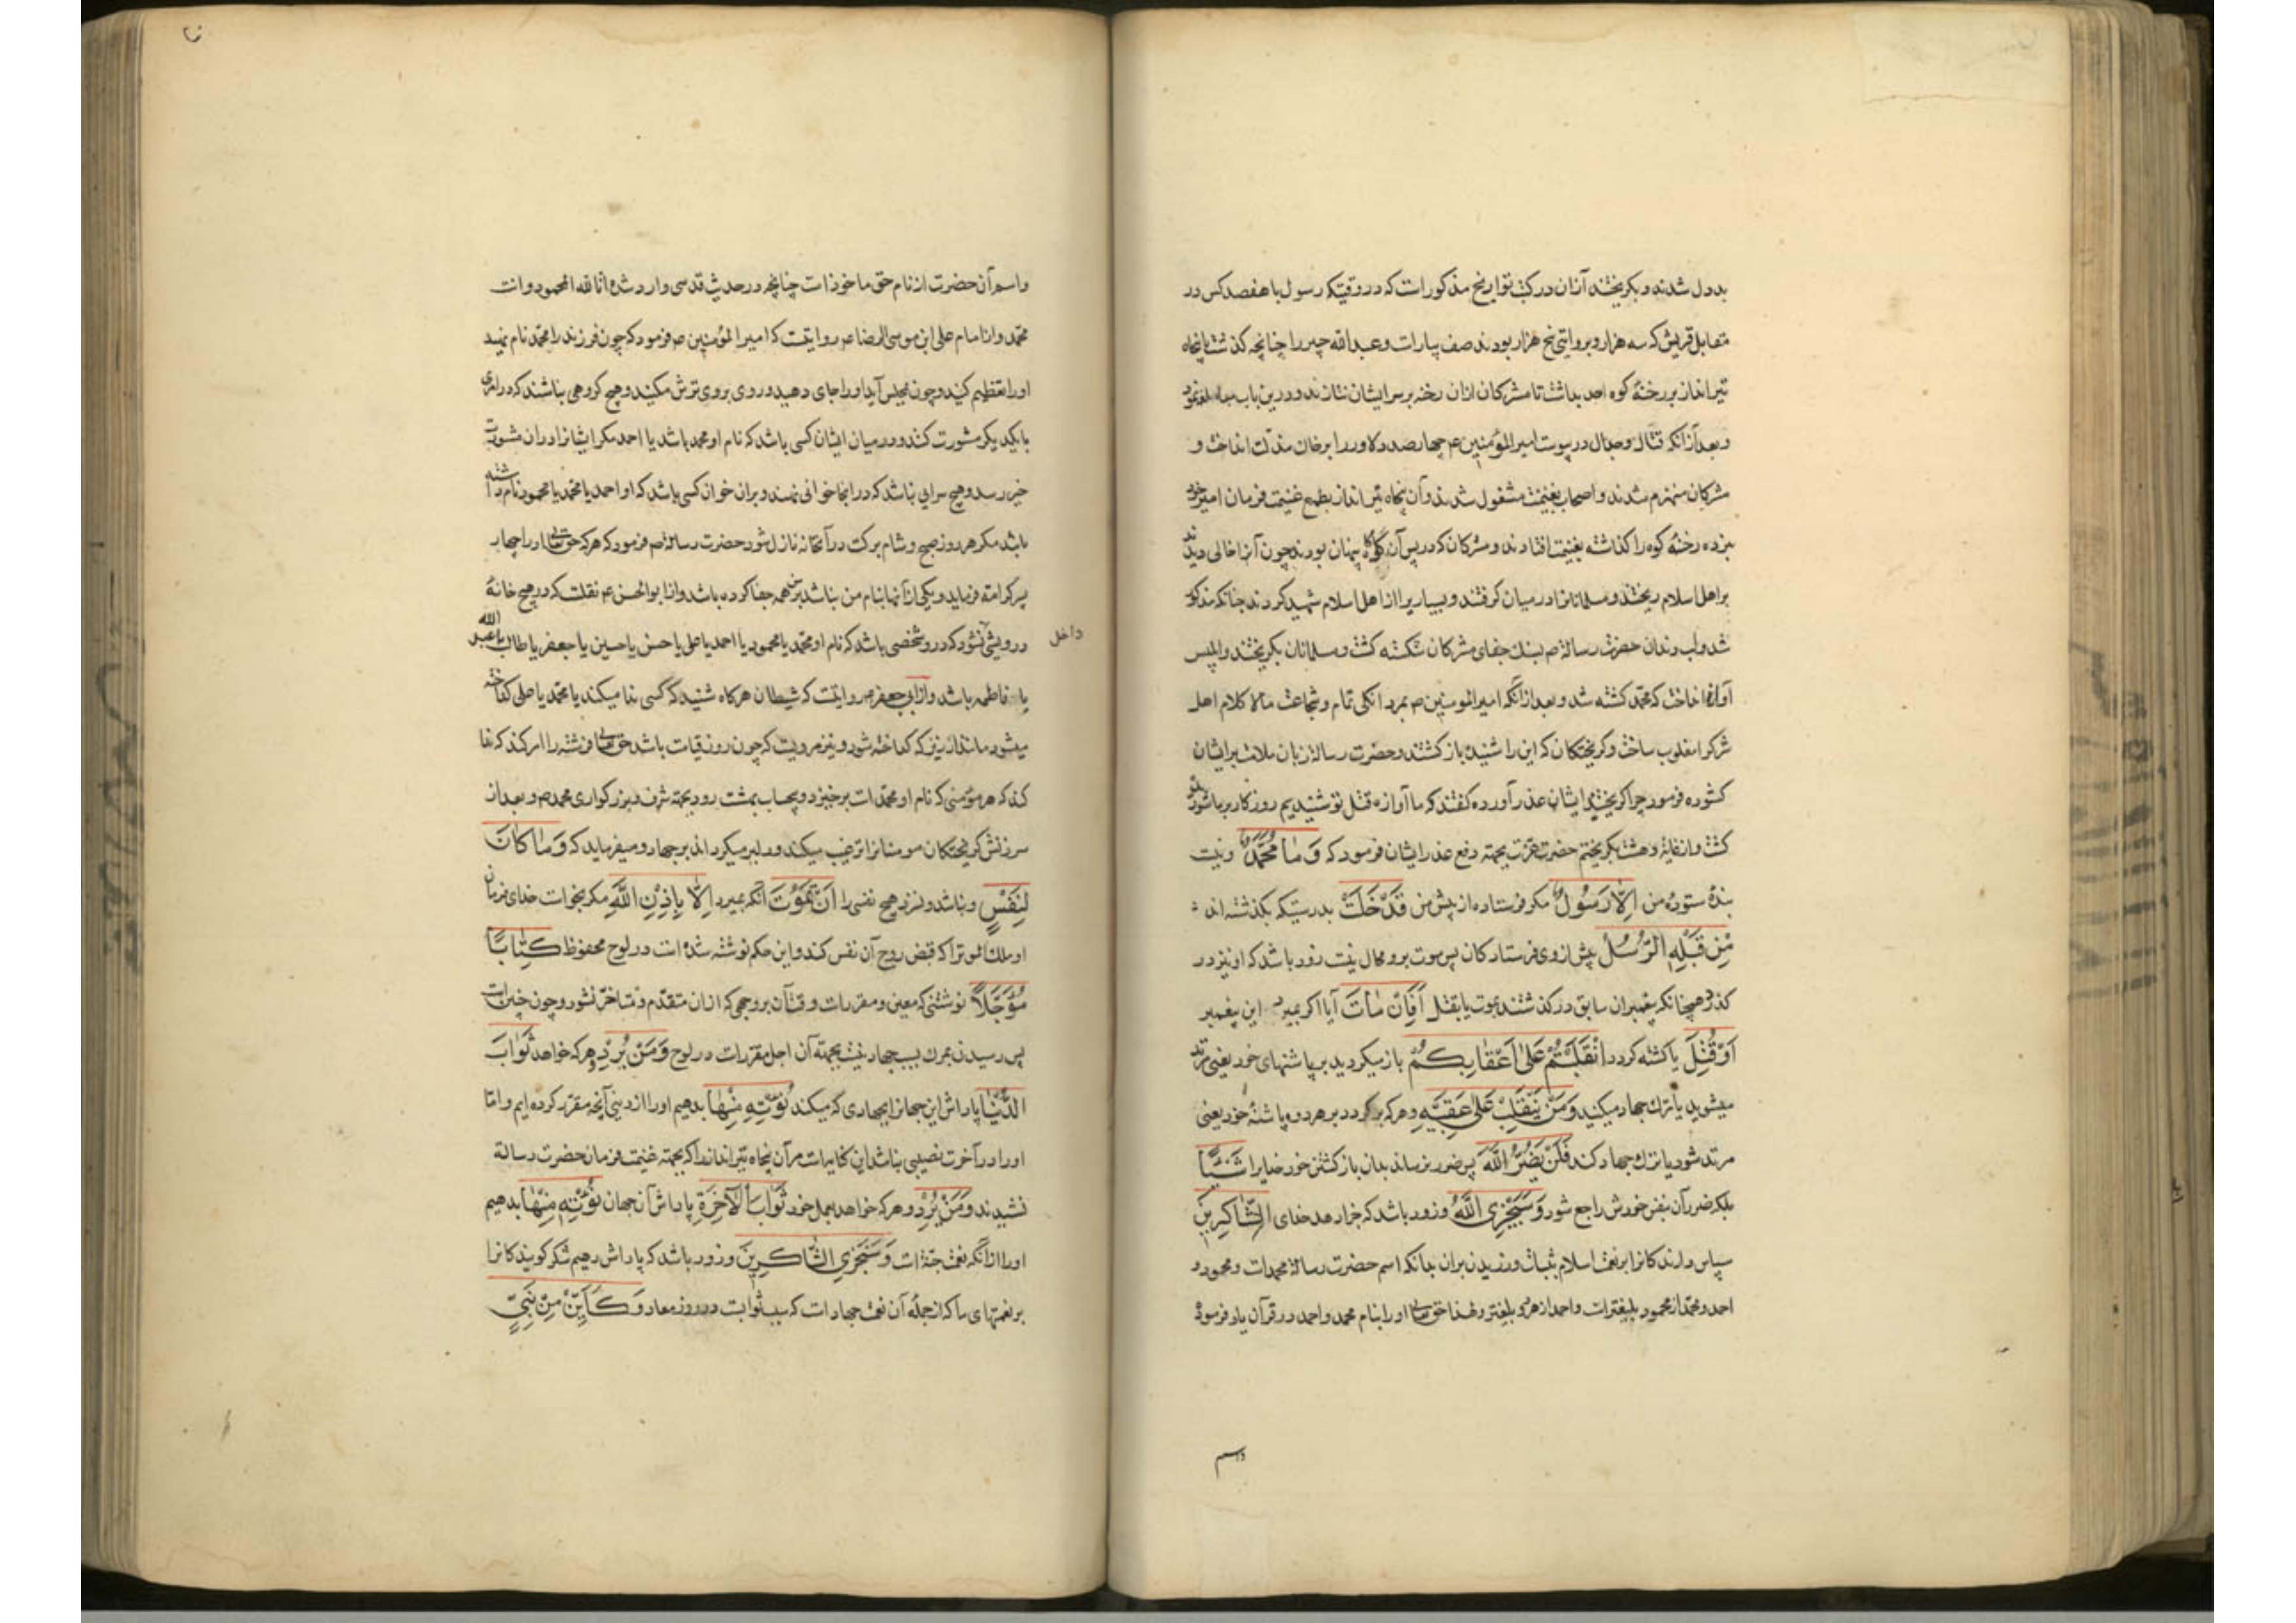 بددل شدند و بگریختند آزان در کتب تواریخ مذکورات که در وقتیکه رسول با هفصد کس در
مقابل قریش که سه هزار و بروایتی پنج هزار بودند صف بیارات و عبدالله جبیر را چنانچه کذشت با پنجاه
تیرانداز بر رخنهٔ کوه احد بداشت تا مشرکان ازان رخنه بر سر ایشان نتازند و درین باب
و بعد ازانکه قتال و جدال در پیوست امیرالمؤمنین ع چهارصد دلاور را بر خاک مذلت انداخت و
مشرکان منهزم شدند و اصحاب بغنیمت مشغول شدند و آن پنجاه تیرانداز بطمع غنیمت فرمان امیر خود
نبرده رخنهٔ کوه را کذاشته بغنیمت افتادند و مشرکان که در پس آن کوه پنهان بودند چون آنرا خالی دیدند
بر اهل اسلام ریختند و مسلمانانرا در میان کرفتند و بسیاریرا از اهل اسلام شهید کردند چنانکه مذکور
شد و لب و دندان حضرت رسالة ص بسنك جفای مشرکان شکسته کشت و مسلمانان بکریختند و ابلیس
آوازه انداخت که محمد کشته شد و بعد ازانکه امیرالمومنین ص بمردانکی تمام و شجاعت مالا کلام اهل
شرکرا مغلوب ساخت و کریختکان که این را شنیدند باز کشتند و حضرت رسالة زبان ملامت بر ایشان
کشوده فرمود چرا کریختید ایشان عذر آورده کفتند که ما آوازه قتل تو شنیدیم روزکار بر ما شوریده
کشت و از غایة دهشت بکریختم حضرت عزت بجهته دفع عذر ایشان فرمود که وَمَا مُحَمَّدٌ و نیست
بندهٔ ستودهٔ من اِلَّا رَسُولٌ مکر فرستاده از پیش من قَدْ خَلَتْ بدرستیکه بکذشته اند
مِنْ قَبْلِهِ الرُّسُلُ پیش از وی فرستادکان پس موت برو محال نیست زود باشد که او نیز در
کذرد همچنانکه پیغمبران سابق در کذشتند بموت یا بقتل اَفَاِنْ مَاتَ آیا اکر بمیرد این پیغمبر
اَوْ قُتِلَ یا کشته کردد انْقَلَبْتُمْ عَلٰی اَعْقَابِکُمْ باز میکردید بر پاشنهای خود یعنی مرتد
میشوید یا ترك جهاد میکنید وَمَنْ یَنْقَلِبْ عَلٰی عَقِبَیْهِ و هر که بر کردد بر هر دو پاشنهٔ خود یعنی
مرتد شود یا ترك جهاد کند فَلَنْ یَضُرَّ اللّٰهَ پس ضرر نرساند بدان باز کشتن خود خدایرا شَیْئًا
بلکه ضرر آن بنفس خودش راجع شود وَسَیَجْزِی اللّٰهُ و زود باشد که جزا دهد خدای الشَّاکِرِینَ
سپاس دارندکانرا بر نعمت اسلام بثبات ورزیدن بران بدانکه اسم حضرت رسالة محمدات و محمود و
احمد و محمد از محمود بلیغترات و احمد از هر دو بلیغتر و لهذا حق تعالی او را بنام محمد و احمد در قرآن یاد فرموده
واسم
واسم آن حضرت از نام حق ماخوذات چنانچه در حدیث قدسی وارد شده انا الله المحمود وانت
محمد و از امام علی ابن موسی الرضا ع روایتست که امیرالمؤمنین ص فرمود که چون فرزند را محمد نام نهید
او را تعظیم کنید و چون بمجلس آید او را جای دهید و روی بروی ترش مکنید و هیچ کروهی نباشند که در امری
با یکدیکر مشورت کنند و در میان ایشان کسی باشد که نام او محمد باشد یا احمد مکر ایشانرا دران مشورت
خیر رسد و هیچ سرایی نباشد که در انجا خوانی نهند و بران خوان کسی باشد که او احمد یا محمد یا محمود نام داشته
باشد مکر هر روز صبح و شام برکت در آنخانه نازل شود حضرت رسالة ص فرمود که هر که حق تعالی او را چهار
پسر کرامة فرماید و یکی از آنها بنام من نباشد بر من همه جفا کرده باشد و از ابوالحسن ع نقلست که در هیچ خانهٔ
درویشی نشود که درو شخصی باشد که نام او محمد یا محمود یا احمد یا علی یا حسن یا حسین یا جعفر یا طالب یا عبد الله
داخل
یا فاطمه باشد و از ابی جعفر ص روایتست که شیطان هر کاه شنید که کسی ندا میکند یا محمد یا علی کداخته
میشود مانند ارزیز که کداخته شود و نیز مرویست که چون روز قیامت باشد حق تعالی فرشته را امر کند که ندا
کند که هر مؤمنی که نام او محمدات برخیزد و بیحساب ببهشت رود بجهته شرف و بزرکواری محمد ص و بعد از
سرزنش کریختکان مومنانرا ترغیب میکند و دلیر میکرداند بر جهاد و میفرماید که وَمَا کَانَ
لِنَفْسٍ و نباشد و نسزد هیچ نفسی را اَنْ تَمُوتَ آنکه بمیرد اِلَّا بِاِذْنِ اللّٰهِ مکر بخواست خدای فرمان
او ملك الموترا که قبض روح آن نفس کند و این حکم نوشته شده است در لوح محفوظ کِتَابًا
مُؤَجَّلًا نوشتنی که معین و مقررات وقت آن بروجهی که ازان متقدم و متاخر نشود و چون چنین است
پس رسیدن بمرك بسبب جهاد نیست بجهته آن اجل مقررات در لوح وَمَنْ یُرِدْ و هر که خواهد ثَوَابَ
الدُّنْیَا پاداش این جهانرا بجهادی که میکند نُؤْتِهِ مِنْهَا بدهیم او را از دنیی آنچه مقرر کرده ایم و اما
او را در آخرت نصیبی نباشد این کنایت است مر آن پنجاه تیراندازرا که بجهته غنیمت فرمان حضرت رسالة
نشیدند وَمَنْ یُرِدْ و هر که خواهد بعمل خود ثَوَابَ الْآخِرَةِ پاداش آن جهان نُؤْتِهِ مِنْهَا بدهیم
او را ازانکه نعمت جنت است وَسَنَجْزِی الشَّاکِرِینَ و زود باشد که پاداش دهیم شکر کویندکانرا
بر نعمتهای ما که از جمله آن نعمت جهادات که سبب ثوابست در روز معاد وَکَاَیِّنْ مِنْ نَبِیٍّ